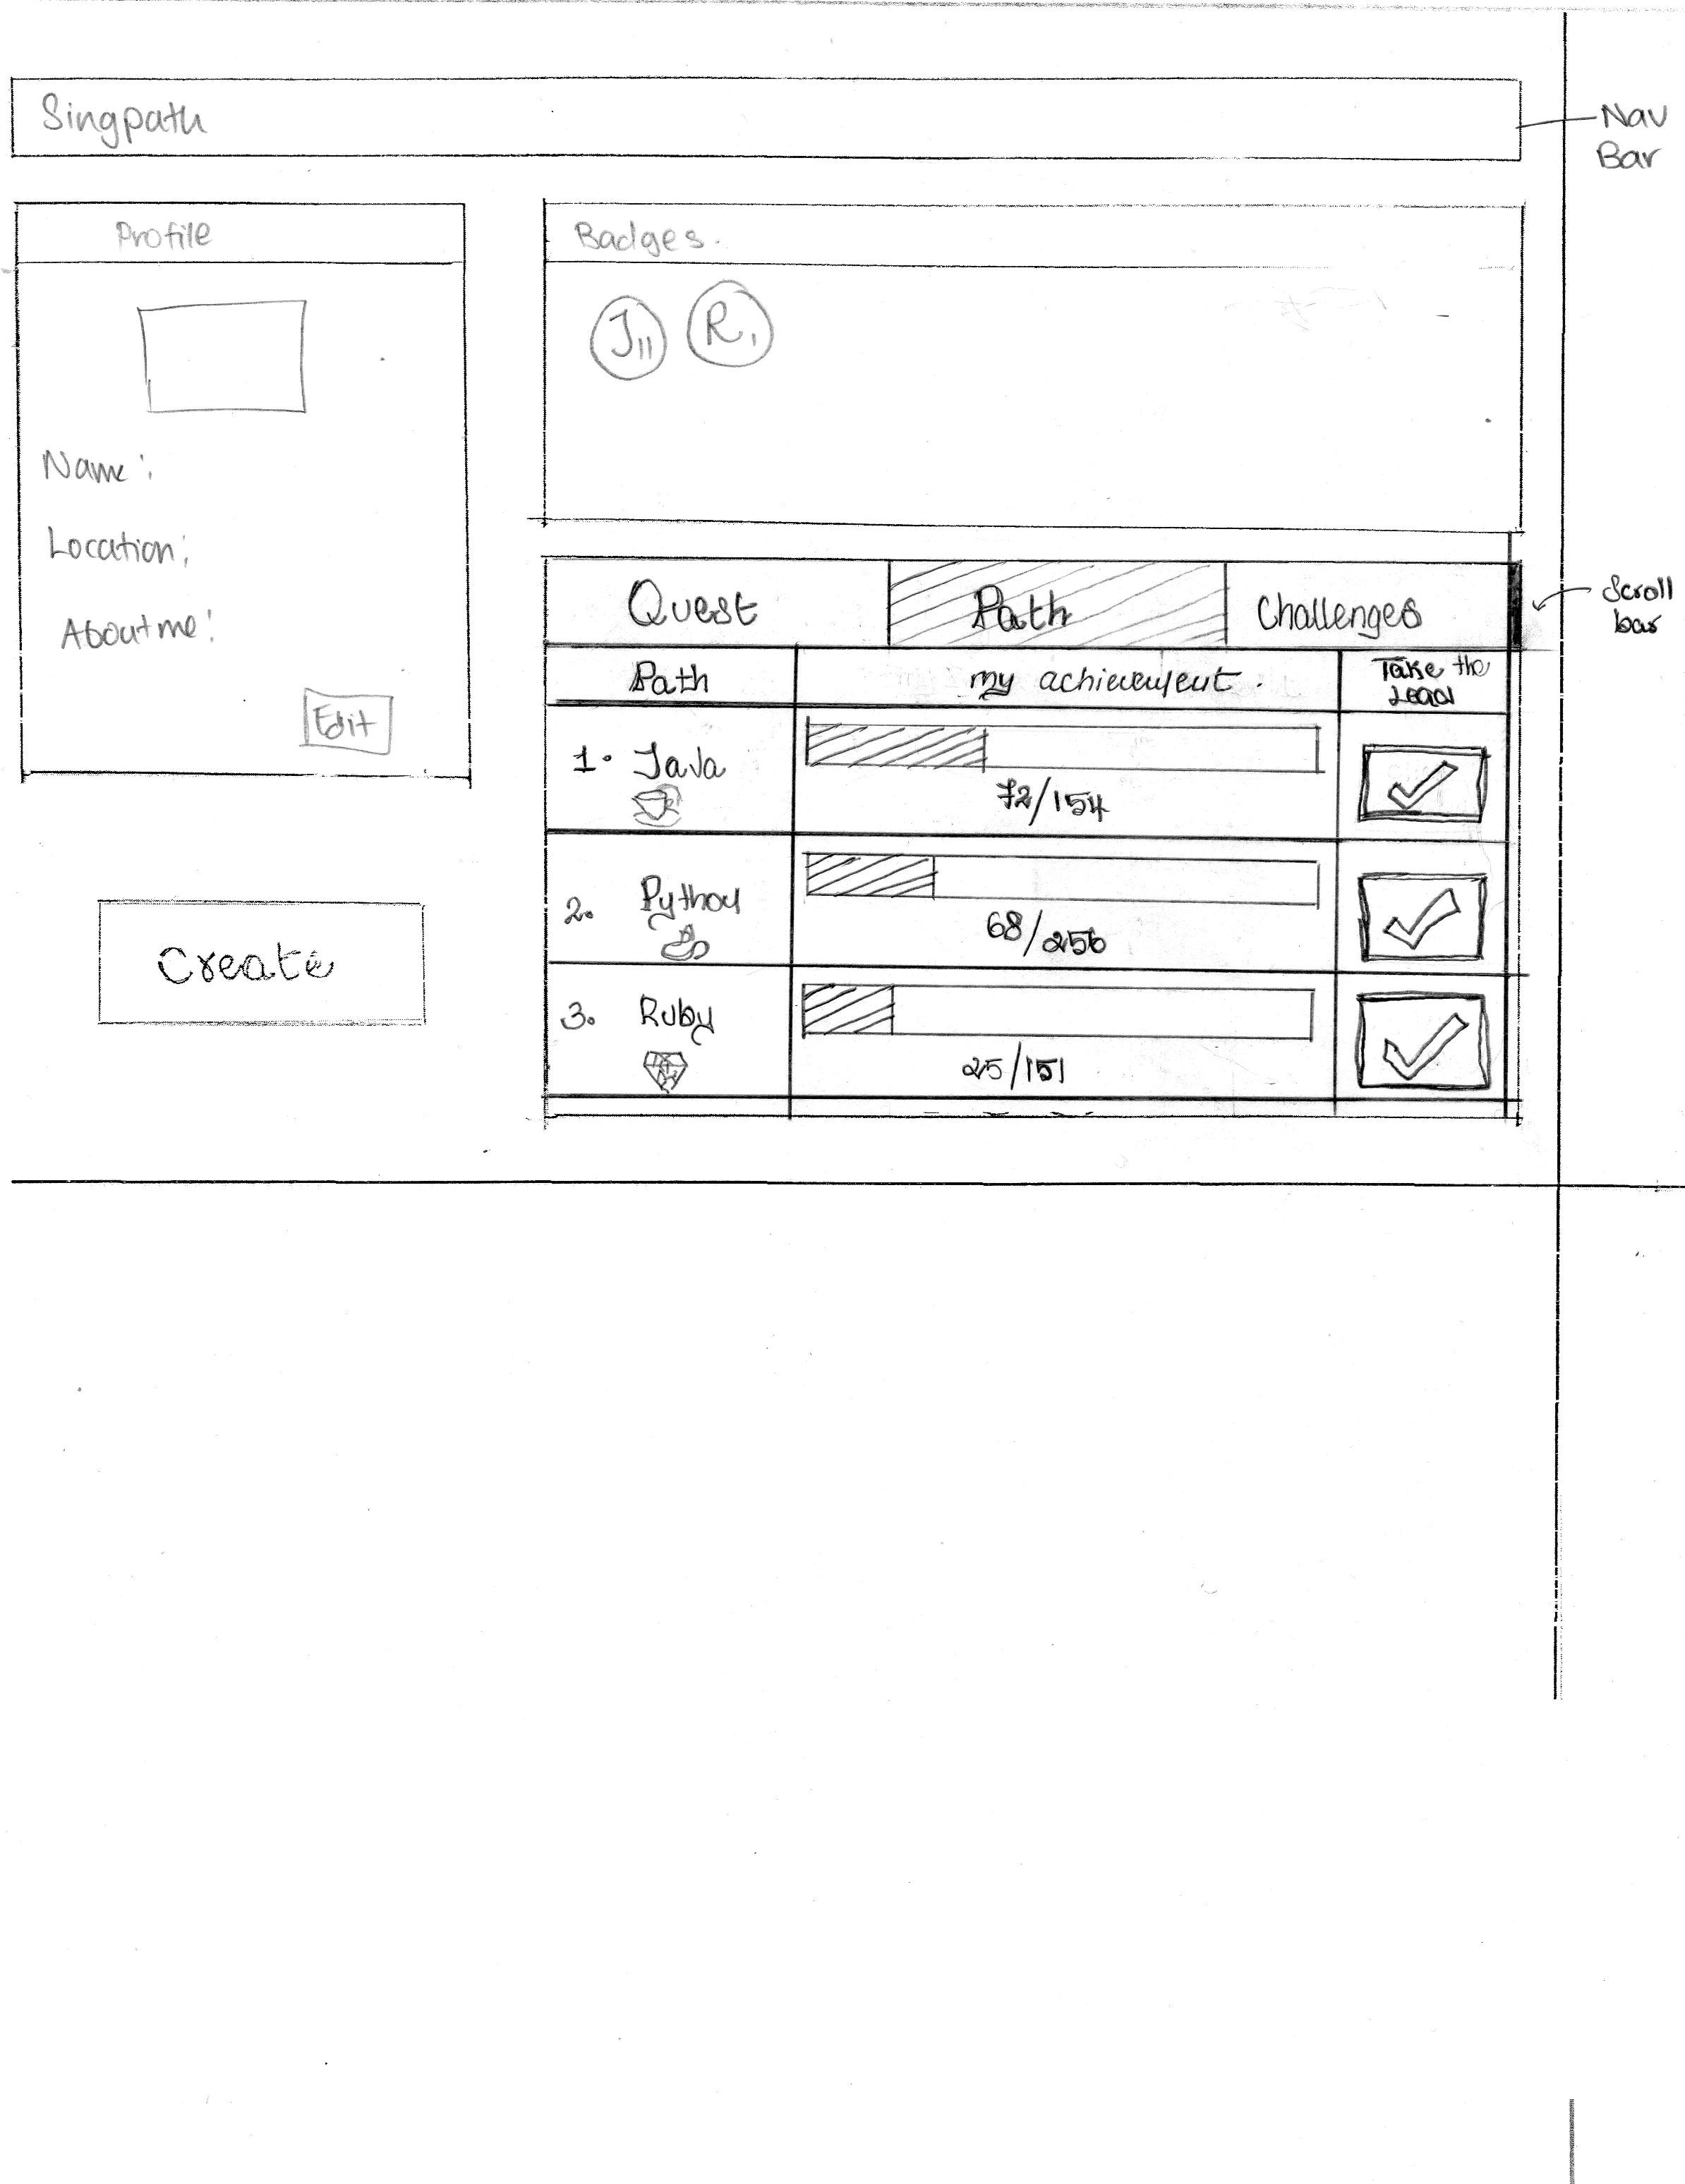 Singpath
Nav
Bar
Profile
Name:
Location:
About me:
Edit
Create
Badges.
J11 R1
Quest Path Challenges
Scroll
bar
Path my achievement. Take the
Lead
1. Java 72/154
2. Python 68/256
3. Ruby 25/151